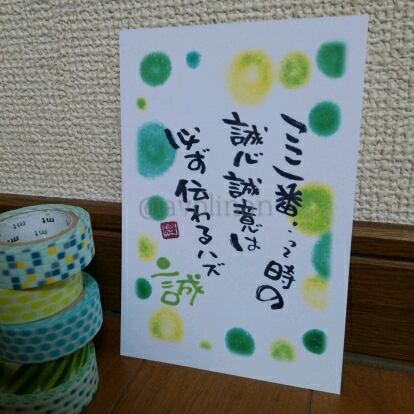 ここ一番…って時の
誠心誠意は
必ず伝わるハズ
誠
mt